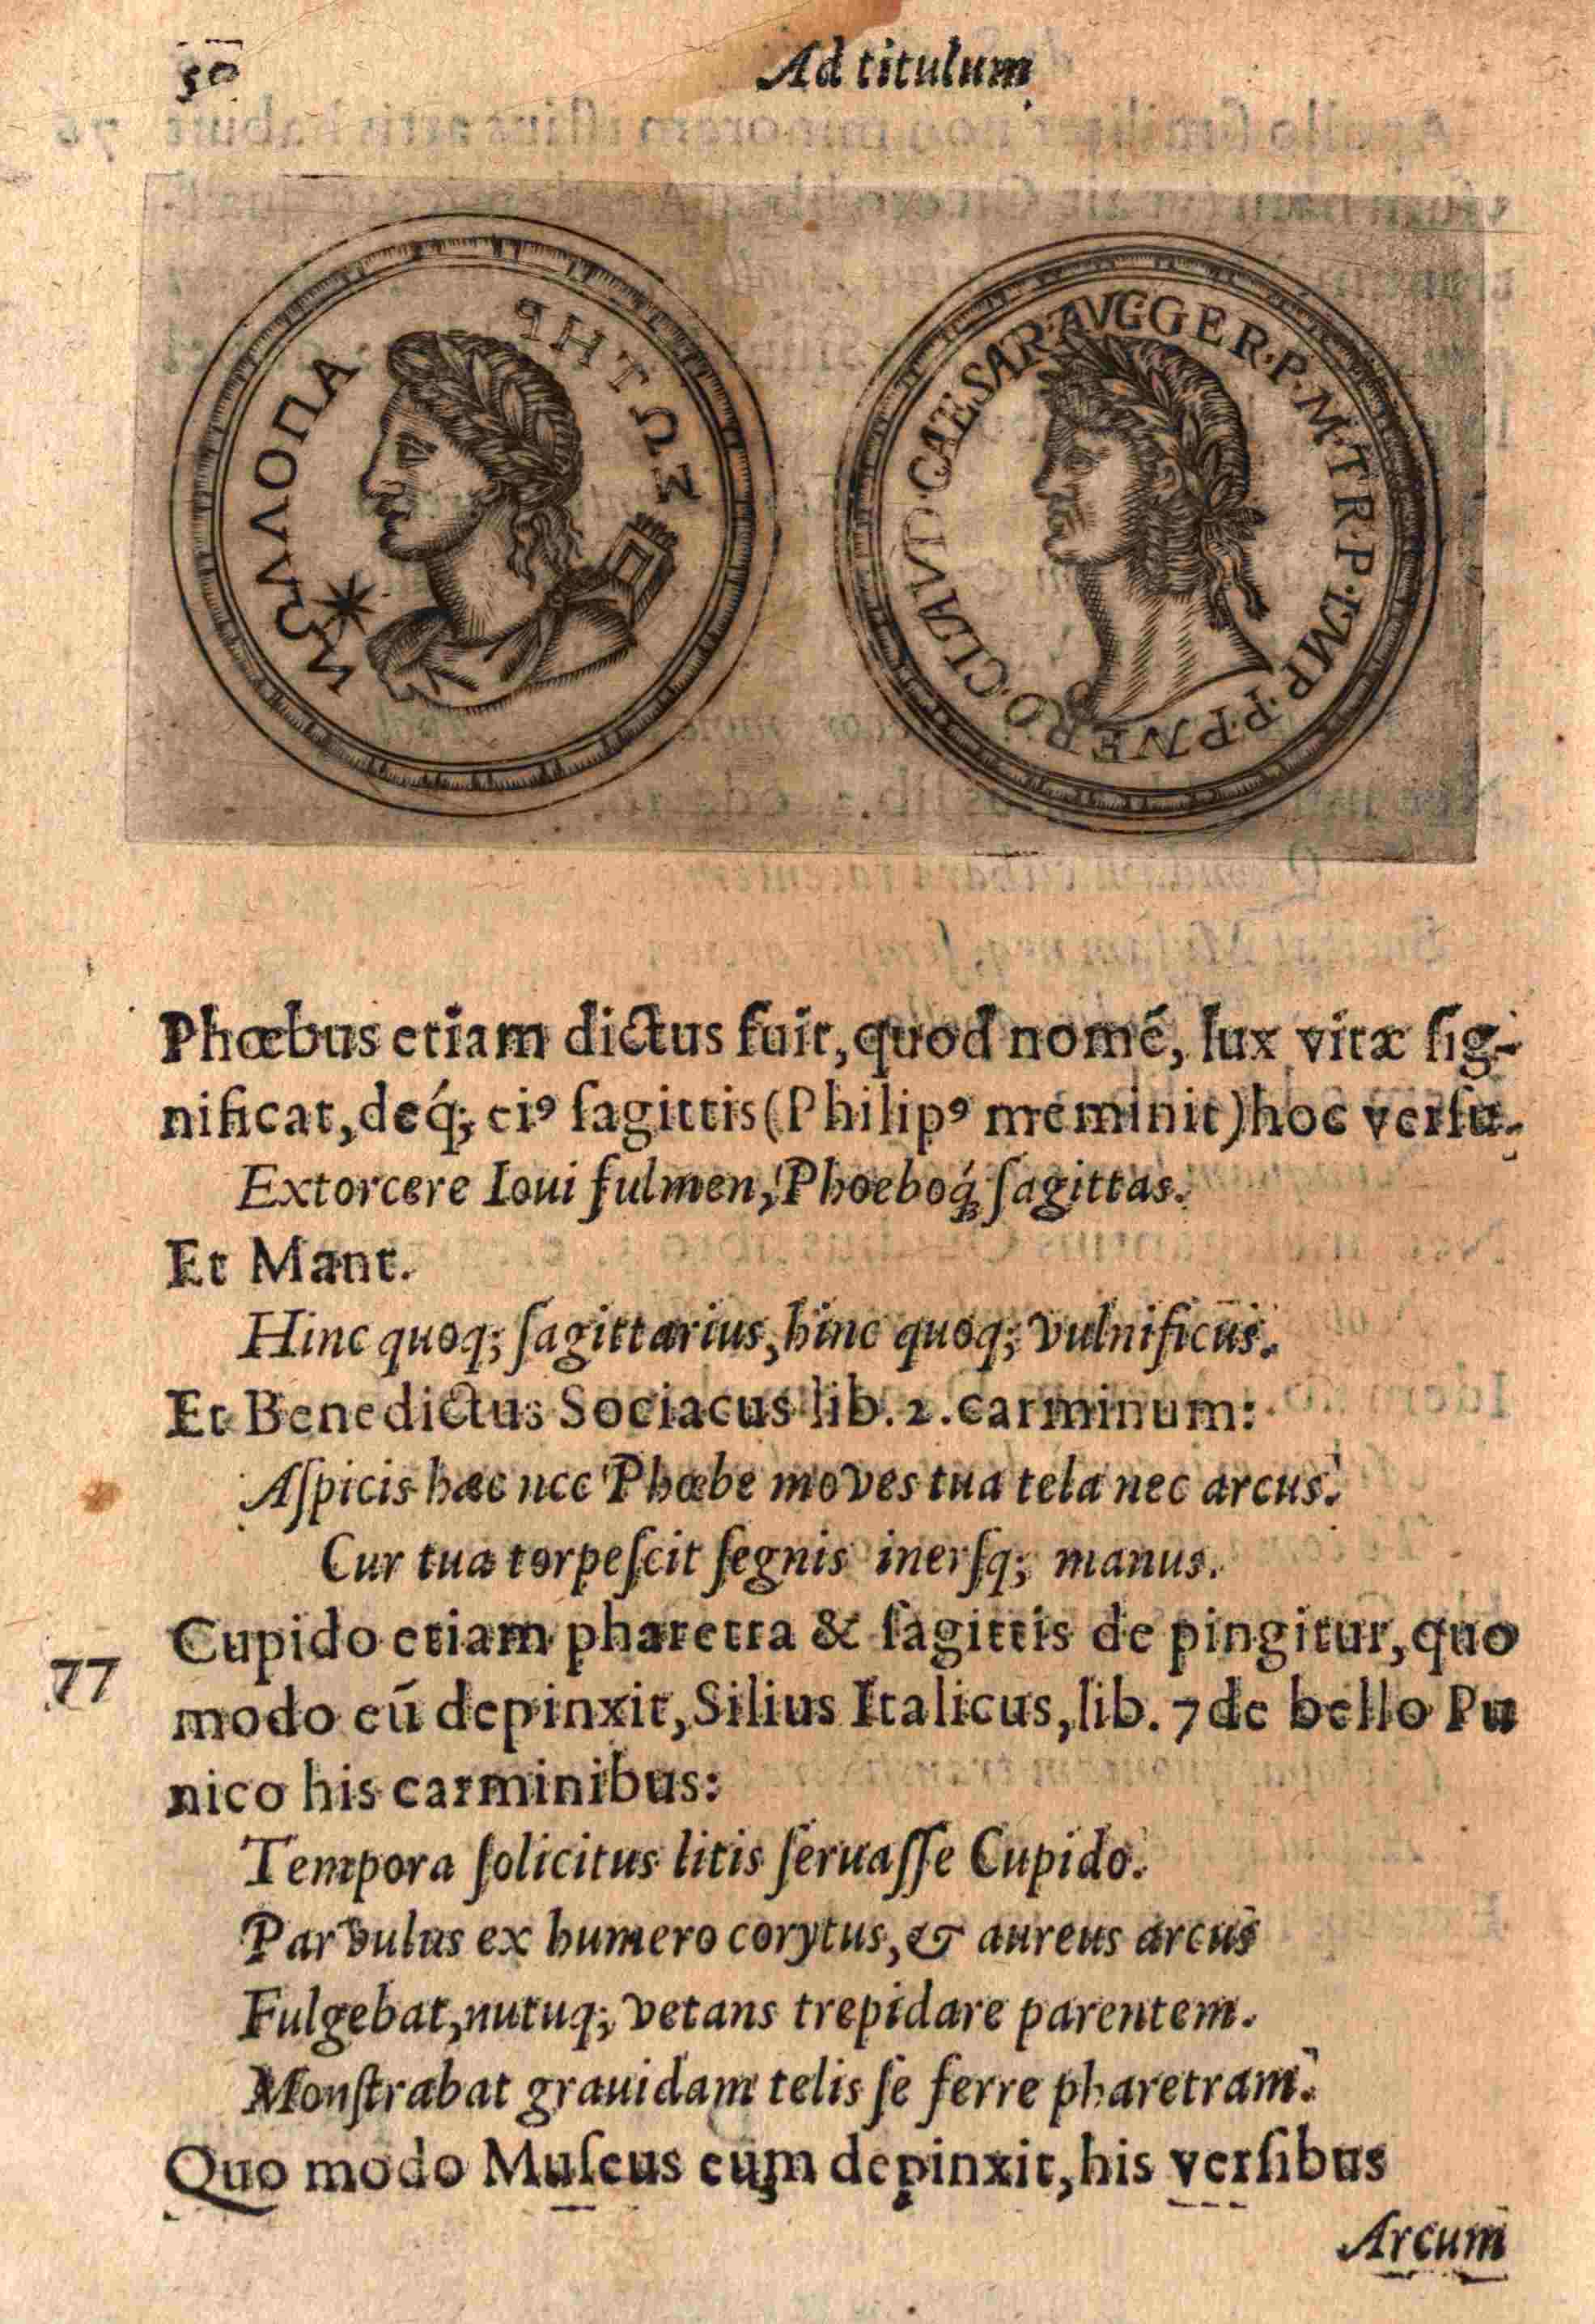 50 Ad titulum
ΑΠΟΛΛΩΝ ΣΩΤΗΡ
NERO·CLAVD·CAESAR·AVG·GER·P·M·TR·P·IMP·P·P·
Phœbus etiam dictus fuit, quod nomé, lux vitæ ſig-
nificat, deq́; ei⁹ ſagittis (Philip⁹ meminit) hoc verſu.
Extorcere Ioui fulmen, Phoeboq́; ſagittas.
Et Mant.
Hinc quoq; ſagittarius, hinc quoq; vulnificus.
Et Benedictus Sociacus lib. 2. carminum:
Aſpicis hæc nec Phœbe moves tua tela nec arcus.
Cur tua torpeſcit ſegnis inerſq; manus.
77 Cupido etiam pharetra & ſagittis de pingitur, quo
modo eū depinxit, Silius Italicus, lib. 7 de bello Pu
nico his carminibus:
Tempora ſolicitus litis ſeruaſſe Cupido.
Parvulus ex humero corytus, & aureus arcus
Fulgebat, nutuq; vetans trepidare parentem.
Monſtrabat grauidam telis ſe ferre pharetram.
Quo modo Muſeus eum depinxit, his verſibus
Arcum